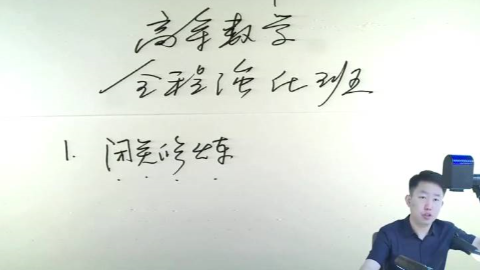 高等数学
全程强化班
1. 闭关修炼